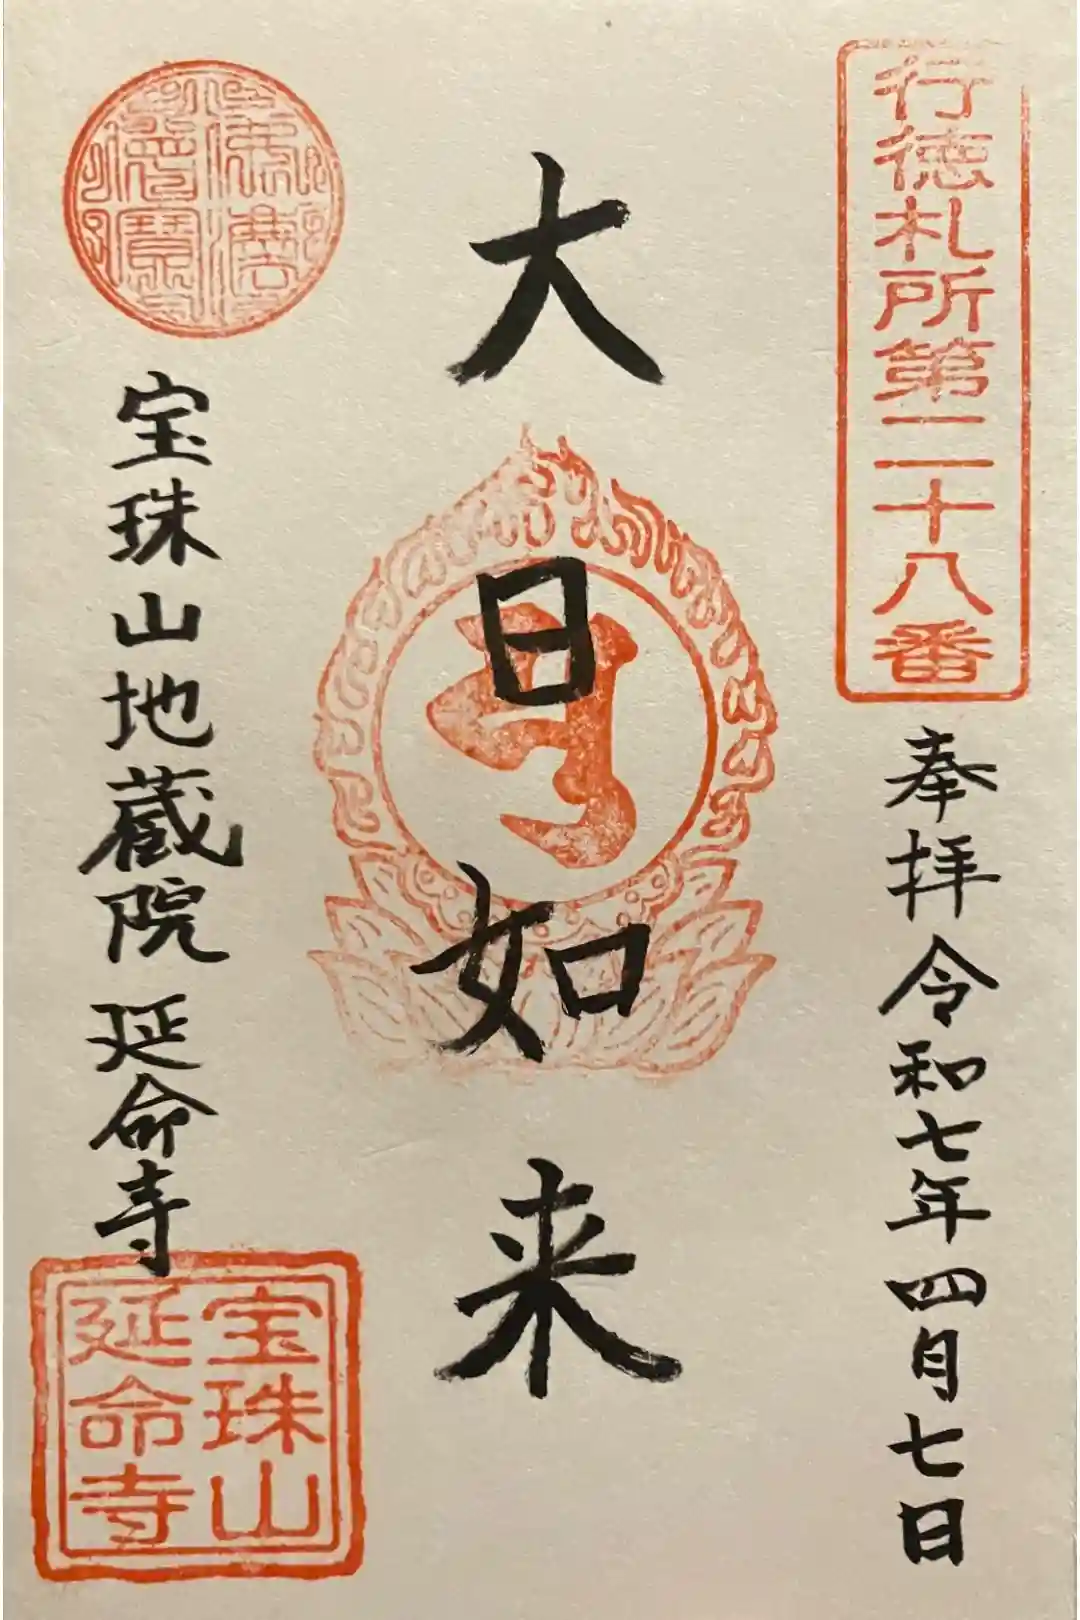 行徳札所第二十八番
奉拝 令和七年四月七日
大日如来
佛法
僧寳
宝珠山地蔵院 延命寺
宝珠山
延命寺